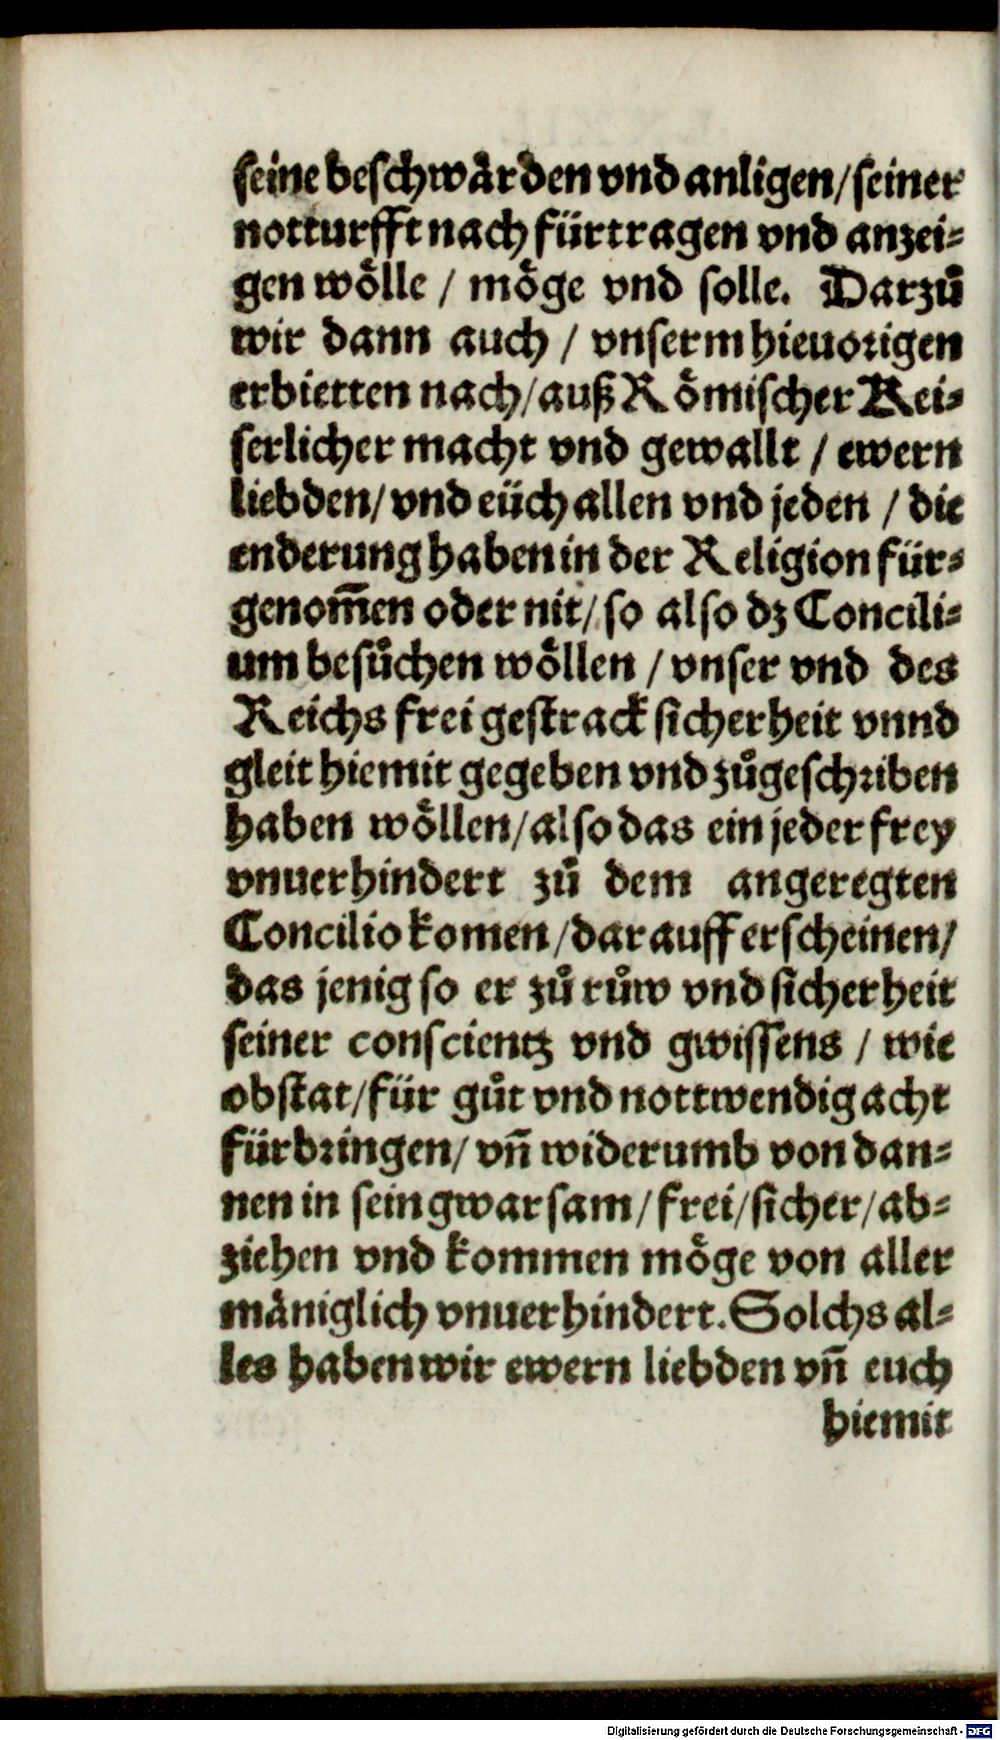 seine beschwaͤrden vnd anligen/seiner
notturfft nach fürtragen vnd anzei⸗
gen woͤlle / moͤge vnd solle. Darzuͦ
wir dann auch / vnserm hieuorigen
erbietten nach/auß Roͤmischer Kei⸗
serlicher macht vnd gewallt / ewern
liebden/vnd eüch allen vnd jeden / die
enderung haben in der Religion für⸗
genom̄en oder nit/so also dz Concili⸗
um besuͦchen woͤllen / vnser vnd des
Reichs frei gestrack sicherheit vnnd
gleit hiemit gegeben vnd zuͦgeschriben
haben woͤllen/also das ein jeder frey
vnuerhindert zuͦ dem angeregten
Concilio komen/darauff erscheinen/
das jenig so er zuͦ ruͦw vnd sicherheit
seiner conscientz vnd gwissens / wie
obstat/für guͦt vnd nottwendig acht
fürbringen/vn̄ widerumb von dan⸗
nen in sein gwarsam/frei/sicher/ab⸗
ziehen vnd kommen moͤge von aller
maͤniglich vnuerhindert. Solchs al⸗
les haben wir ewern liebden vn̄ euch
hiemit
Digitalisierung gefördert durch die Deutsche Forschungsgemeinschaft - DFG